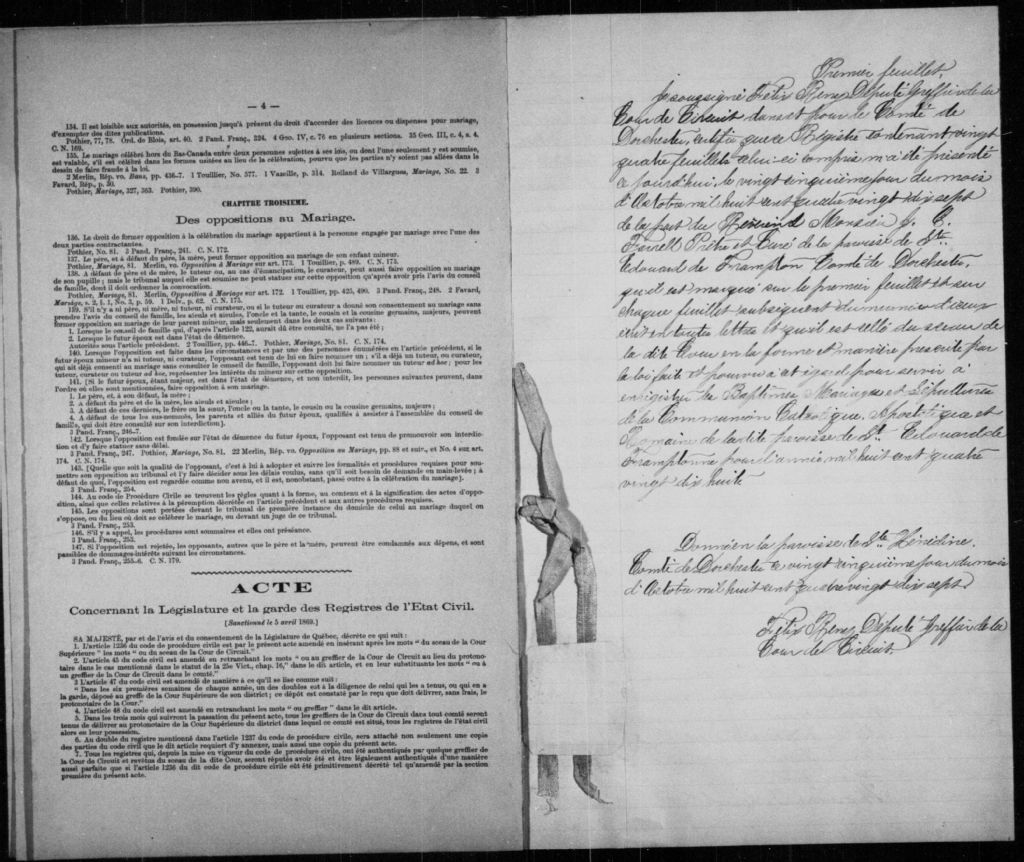 — 4 —
134. Il est loisible aux autorités, en possession jusqu'à présent du droit d'accorder des licences ou dispenses pour mariage,
d'exempter des dites publications.
Pothier, 77, 78. Ord. de Blois, art. 40. 2 Pand. Franç., 324. 4 Geo. IV, c. 76 en plusieurs sections. 35 Geo. III, c. 4, s. 4.
C. N. 169.
135. Le mariage célébré hors du Bas-Canada entre deux personnes sujettes à ses lois, ou dont l'une seulement y est soumise,
est valable, s'il est célébré dans les formes usitées au lieu de la célébration, pourvu que les parties n'y soient pas allées dans le
dessein de faire fraude à la loi.
2 Merlin, Rép. vo. Bans, pp. 436-7. 1 Toullier, No. 577. 1 Vazeille, p. 314. Rolland de Villargues, Mariage, No. 22. 3
Favard, Rép., p. 50.
Pothier, Mariage, 327, 363. Pothier, 390.
CHAPITRE TROISIEME.
Des oppositions au Mariage.
136. Le droit de former opposition à la célébration du mariage appartient à la personne engagée par mariage avec l'une des
deux parties contractantes.
Pothier, No. 81. 3 Pand. Franç., 241. C. N. 172.
137. Le père, et à défaut du père, la mère, peut former opposition au mariage de son enfant mineur.
Pothier, Mariage, 81. Merlin, vo. Opposition à Mariage sur art. 173. 1 Toullier, p. 489. C. N. 173.
138. A défaut de père et de mère, le tuteur ou, au cas d'émancipation, le curateur, peut aussi faire opposition au mariage
de son pupille; mais le tribunal auquel elle est soumise ne peut statuer sur cette opposition qu'après avoir pris l'avis du conseil
de famille, dont il doit ordonner la convocation.
Pothier, Mariage, 81. Merlin, Opposition à Mariage sur art. 172. 1 Toullier, pp. 425, 490. 3 Pand. Franç., 248. 2 Favard,
Mariage, s. 2, § 1, No. 3, p. 59. 1 Delv., p. 62. C. N. 175.
139. S'il n'y a ni père, ni mère, ni tuteur, ni curateur, ou si le tuteur ou curateur a donné son consentement au mariage sans
prendre l'avis du conseil de famille, les aïeuls et aïeules, l'oncle et la tante, le cousin et la cousine germains, majeurs, peuvent
former opposition au mariage de leur parent mineur, mais seulement dans les deux cas suivants:
1. Lorsque le conseil de famille qui, d'après l'article 122, aurait dû être consulté, ne l'a pas été;
2. Lorsque le futur époux est dans l'état de démence.
Autorités sous l'article précédent. 2 Toullier, pp. 446-7. Pothier, Mariage, No. 81. C. N. 174.
140. Lorsque l'opposition est faite dans les circonstances et par une des personnes énumérées en l'article précédent, si le
futur époux mineur n'a ni tuteur, ni curateur, l'opposant est tenu de lui en faire nommer un; s'il a déjà un tuteur, ou curateur,
qui ait déjà consenti au mariage sans consulter le conseil de famille, l'opposant doit lui faire nommer un tuteur ad hoc; pour les
tuteur, curateur ou tuteur ad hoc, représenter les intérêts du mineur sur cette opposition.
141. [Si le futur époux, étant majeur, est dans l'état de démence, et non interdit, les personnes suivantes peuvent, dans
l'ordre où elles sont mentionnées, faire opposition à son mariage.
1. Le père, et, à son défaut, la mère;
2. A défaut du père et de la mère, les aïeuls et aïeules;
3. A défaut de ces derniers, le frère ou la sœur, l'oncle ou la tante, le cousin ou la cousine germains, majeurs;
4. A défaut de tous les sus-nommés, les parents et alliés du futur époux, qualifiés à assister à l'assemblée du conseil de
famille, qui doit être consulté sur son interdiction].
3 Pand. Franç., 246-7.
142. Lorsque l'opposition est fondée sur l'état de démence du futur époux, l'opposant est tenu de promouvoir son interdic-
tion et d'y faire statuer sans délai.
3 Pand. Franç., 247. Pothier, Mariage, No. 81. 22 Merlin, Rép. vo. Opposition au Mariage, pp. 88 et suiv., et No. 4 sur art.
174. C. N. 174.
143. [Quelle que soit la qualité de l'opposant, c'est à lui à adopter et suivre les formalités et procédures requises pour sou-
mettre son opposition au tribunal et l'y faire décider sous les délais voulus, sans qu'il soit besoin de demande en main-levée; à
défaut de quoi, l'opposition est regardée comme non avenu, et il est, nonobstant, passé outre à la célébration du mariage].
3 Pand. Franç., 254.
144. Au code de Procédure Civile se trouvent les règles quant à la forme, au contenu et à la signification des actes d'oppo-
sition, ainsi que celles relatives à la péremption décrétée en l'article précédent et aux autres procédures requises.
145. Les oppositions sont portées devant le tribunal de première instance du domicile de celui au mariage duquel on
s'oppose, ou du lieu où doit se célébrer le mariage, ou devant un juge de ce tribunal.
3 Pand. Franç., 253.
146. S'il y a appel, les procédures sont sommaires et elles ont préséance.
3 Pand. Franç., 253.
147. Si l'opposition est rejetée, les opposants, autres que le père et la mère, peuvent être condamnés aux dépens, et sont
passibles de dommages-intérêts suivant les circonstances.
3 Pand. Franç., 255-6. C. N. 179.
ACTE
Concernant la Législature et la garde des Registres de l'Etat Civil.
[Sanctionné le 5 avril 1869.]
SA MAJESTÉ, par et de l'avis et du consentement de la Législature de Québec, décrète ce qui suit:
1. L'article 1236 du code de procédure civile est par le présent acte amendé en insérant après les mots "du sceau de la Cour
Supérieure" les mots "ou du sceau de la Cour de Circuit."
2. L'article 45 du code civil est amendé en retranchant les mots "ou au greffier de la Cour de Circuit au lieu du protono-
taire dans le cas mentionné dans le statut de la 25e Vict., chap. 16," dans le dit article, et en leur substituant les mots "ou à
un greffier de la Cour de Circuit dans le comté."
3 L'article 47 du code civil est amendé de manière à ce qu'il se lise comme suit:
"Dans les six premières semaines de chaque année, un des doubles est à la diligence de celui qui les a tenus, ou qui en a
la garde, déposé au greffe de la Cour Supérieure de son district; ce dépôt est constaté par le reçu que doit délivrer, sans frais, le
protonotaire de la Cour."
4. L'article 48 du code civil est amendé en retranchant les mots "ou greffier" dans le dit article.
5. Dans les trois mois qui suivront la passation du présent acte, tous les greffiers de la Cour de Circuit dans tout comté seront
tenus de délivrer au protonotaire de la Cour Supérieure du district dans lequel ce comté est situé, tous les registres de l'état civil
alors en leur possession.
6. Au double du registre mentionné dans l'article 1237 du code de procédure civile, sera attaché non seulement une copie
des parties du code civil que le dit article requiert d'y annexer, mais aussi une copie du présent acte.
7. Tous les registres qui, depuis la mise en vigueur du code de procédure civile, ont été authentiqués par quelque greffier de
la Cour de Circuit et revêtus du sceau de la dite Cour, seront réputés avoir été et être légalement authentiqués d'une manière
aussi parfaite que si l'article 1236 du dit code de procédure civile eût été primitivement décrété tel qu'amendé par la section
première du présent acte.
Premier feuillet,
Je soussigné Felix Remy Député Greffier de la
Cour de Circuit dans et pour le Comté de
Dorchester, certifie que ce Régistre contenant vingt
quatre feuillets celui-ci compris m'a été présenté
ce jourd'hui, le vingt cinquième jour du mois
d'Octobre mil huit cent quatre vingt dix sept
de la part du Révérend Monsieur J. E.
Prêtre et Curé de la paroisse de St.
Edouard de Frampton Comté de Dorchester
qu'il est marqué sur le premier feuillet et sur
chaque feuillet subséquent du numéro d'iceux
écrit en toutes lettres et qu'il est scellé du sceau de
la dite Cour en la forme et manière prescrite par
la loi faite et pourvue à cet égard pour servir à
enregistrer les Baptêmes Mariages et Sépultures
de la Communion Catholique, Apostolique et
Romaine de la dite paroisse de St. Edouard de
Framptonne pour l'année mil huit cent quatre
vingt dix huite
Donné en la paroisse de Ste Hénédine
Comté de Dorchester ce vingt cinquième jour du mois
d'Octobre mil huit cent quatre vingt dix sept
Felix Remy Député Greffier de la
Cour de Circuit